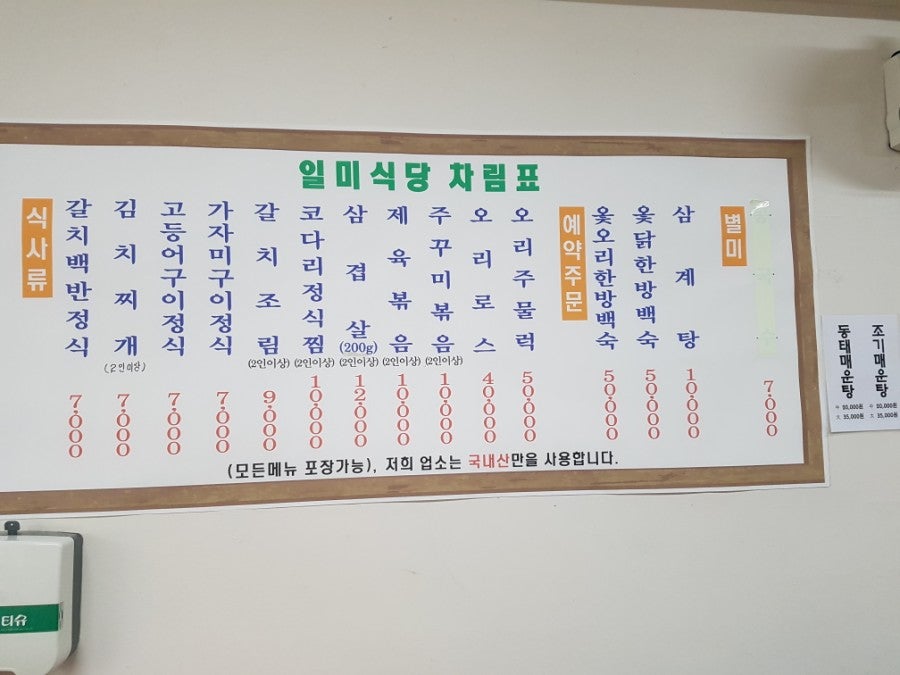 일미식당 차림표
식사류
갈치백반정식 7,000
김치찌개 (2인이상) 7,000
고등어구이정식 7,000
가자미구이정식 7,000
갈치조림 (2인이상) 9,000
코다리정식찜 (2인이상) 10,000
삼겹살 (200g) (2인이상) 12,000
제육볶음 (2인이상) 10,000
주꾸미볶음 (2인이상) 10,000
오리로스 40,000
오리주물럭 50,000
예약주문
옻오리한방백숙 50,000
옻닭한방백숙 50,000
삼계탕 10,000
별미
7,000
(모든메뉴 포장가능), 저희 업소는 국내산만을 사용합니다.
동태매운탕
大 35,000원
조기매운탕
大 35,000원
티슈